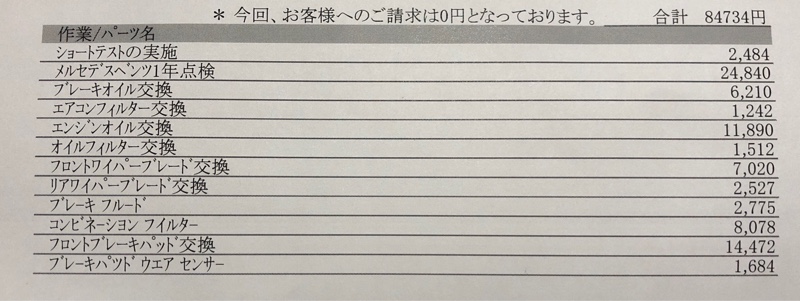 ＊ 今回、お客様へのご請求は0円となっております。 合計 84734円
作業/パーツ名
ショートテストの実施 2,484
メルセデスベンツ1年点検 24,840
ブレーキオイル交換 6,210
エアコンフィルター交換 1,242
エンジンオイル交換 11,890
オイルフィルター交換 1,512
フロントワイパーブレード交換 7,020
リアワイパーブレード交換 2,527
ブレーキ フルード 2,775
コンビネーション フイルター 8,078
フロントブレーキパッド交換 14,472
ブレーキパツド ウエア センサー 1,684